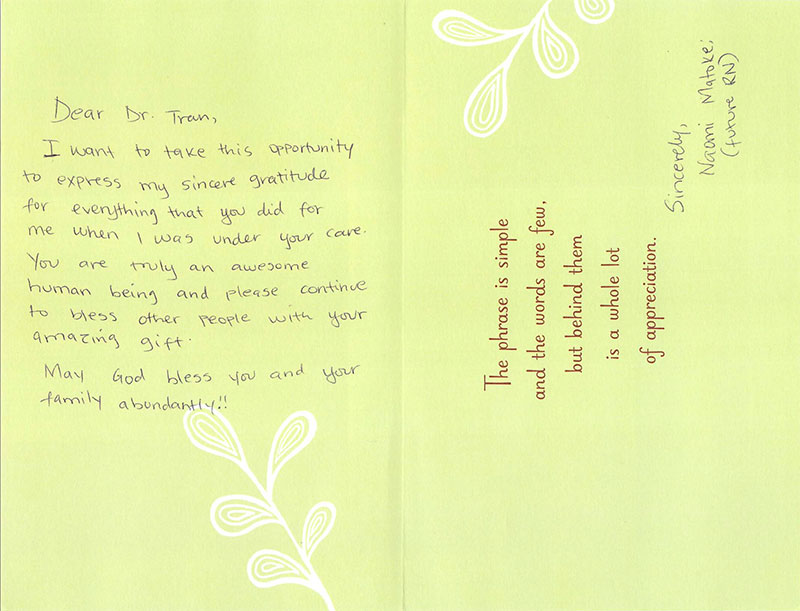 Dear Dr. Tran,
I want to take this opportunity
to express my sincere gratitude
for everything that you did for
me when I was under your care.
You are truly an awesome
human being and please continue
to bless other people with your
amazing gift.
May God bless you and your
family abundantly!!
The phrase is simple
and the words are few,
but behind them
is a whole lot
of appreciation.
Sincerely,
Naomi Matoke;
(future RN)